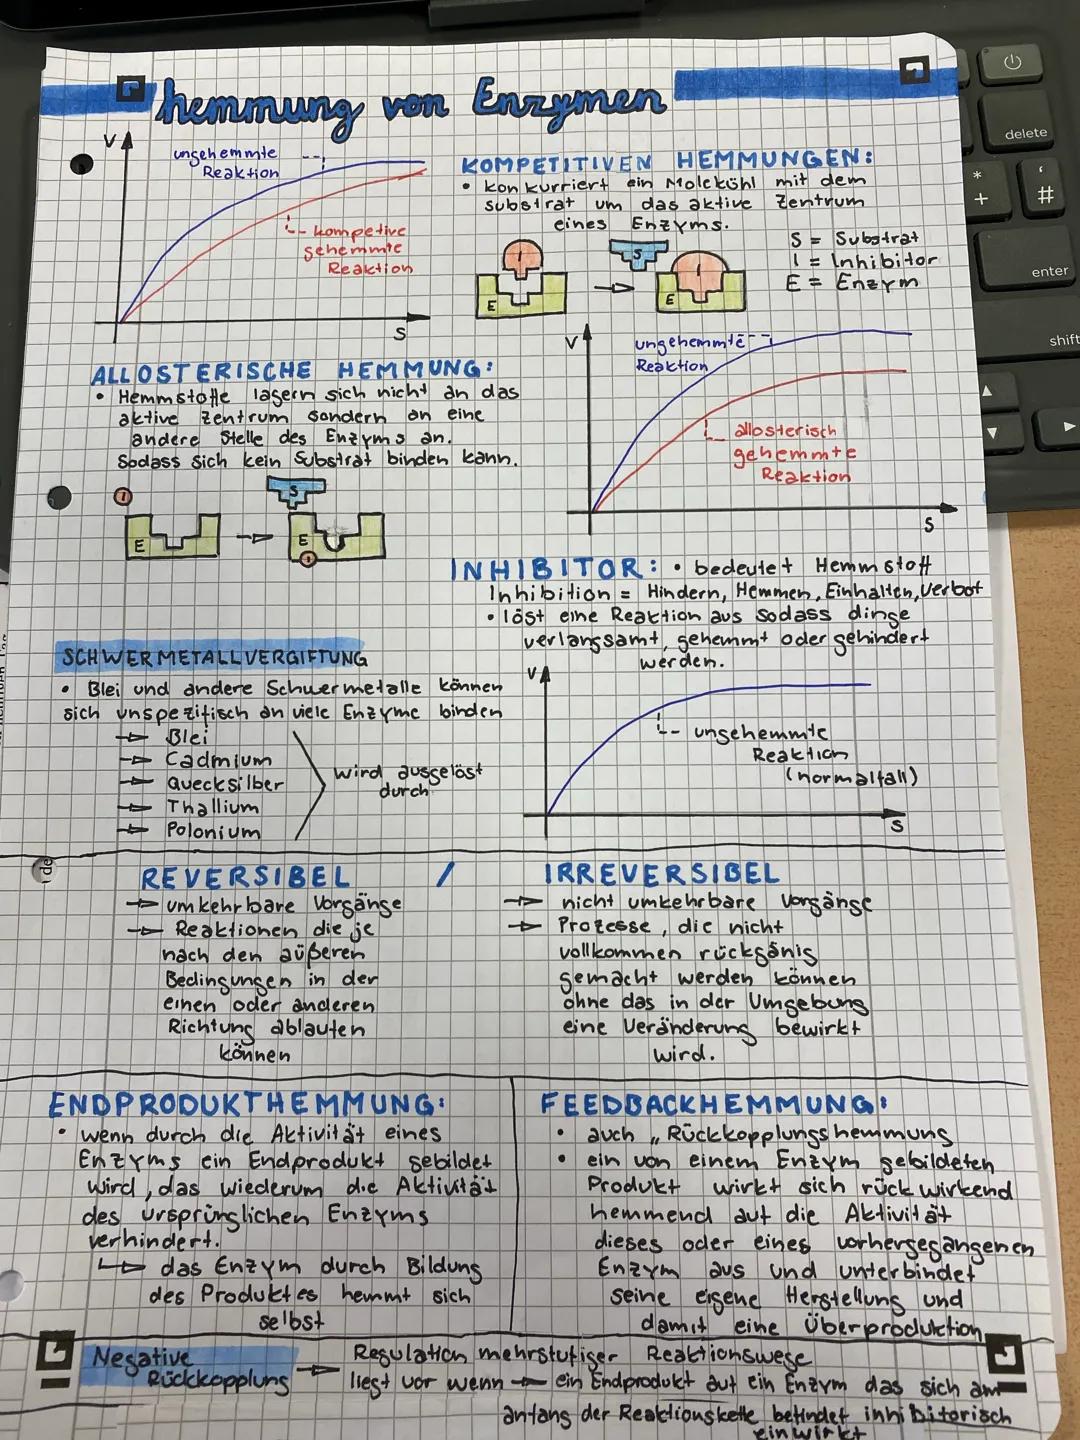 hemmung von Enzymen
V
ungehemmte
Reaktion
kompetive
gehemmte
Reaktion
S
KOMPETITIVEN HEMMUNGEN:
• konkurriert ein Molekühl mit dem
substrat um das aktive Zentrum
eines Enzyms.
S = Substrat
I = Inhibitor
E = Enzym
I
E
S
I
E
ALLOSTERISCHE HEMMUNG:
• Hemmstoffe lagern sich nicht an das
aktive Zentrum sondern an eine
andere Stelle des Enzyms an.
Sodass sich kein Substrat binden kann.
I
E
S
E
I
V
ungehemmte
Reaktion
allosterisch
gehemmte
Reaktion
S
INHIBITOR: • bedeutet Hemmstoff
Inhibition = Hindern, Hemmen, Einhalten, Verbot
• löst eine Reaktion aus sodass dinge
verlangsamt, gehemmt oder gehindert
werden.
SCHWERMETALLVERGIFTUNG
• Blei und andere Schwermetalle können
sich unspezifisch an viele Enzyme binden
→ Blei
→ Cadmium
→ Quecksilber
→ Thallium
→ Polonium
wird ausgelöst
durch
V
ungehemmte
Reaktion
(normalfall)
S
REVERSIBEL /
→ umkehrbare Vorgänge
→ Reaktionen die je
nach den äußeren
Bedingungen in der
einen oder anderen
Richtung ablaufen
können
IRREVERSIBEL
→ nicht umkehrbare Vorgänge
→ Prozesse, die nicht
vollkommen rückgänig
gemacht werden können
ohne das in der Umgebung
eine Veränderung bewirkt
wird.
ENDPRODUKTHEMMUNG:
• wenn durch die Aktivität eines
Enzyms ein Endprodukt gebildet
wird, das wiederum die Aktivität
des ursprünglichen Enzyms
verhindert.
↳ das Enzym durch Bildung
des Produktes hemmt sich
selbst
FEEDBACKHEMMUNG:
• auch „Rückkopplungshemmung
• ein von einem Enzym gebildeten
Produkt wirkt sich rückwirkend
hemmend auf die Aktivität
dieses oder eines vorhergegangenen
Enzym aus und unterbindet
seine eigene Herstellung und
damit eine Überproduktion
Negative
Rückkopplung → Regulation mehrstufiger Reaktionswege
liegt vor wenn → ein Endprodukt auf ein Enzym das sich am
anfang der Reaktionskette befindet inhibitorisch
einwirkt
delete
*
+
‘
#
enter
shift